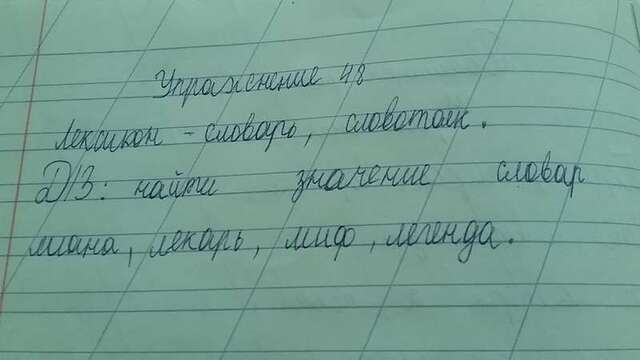 Упражнение 48
Лексикон - словарь, словотолк.
Д/З: найти значение словар
тина, лекарь, миф, легенда.